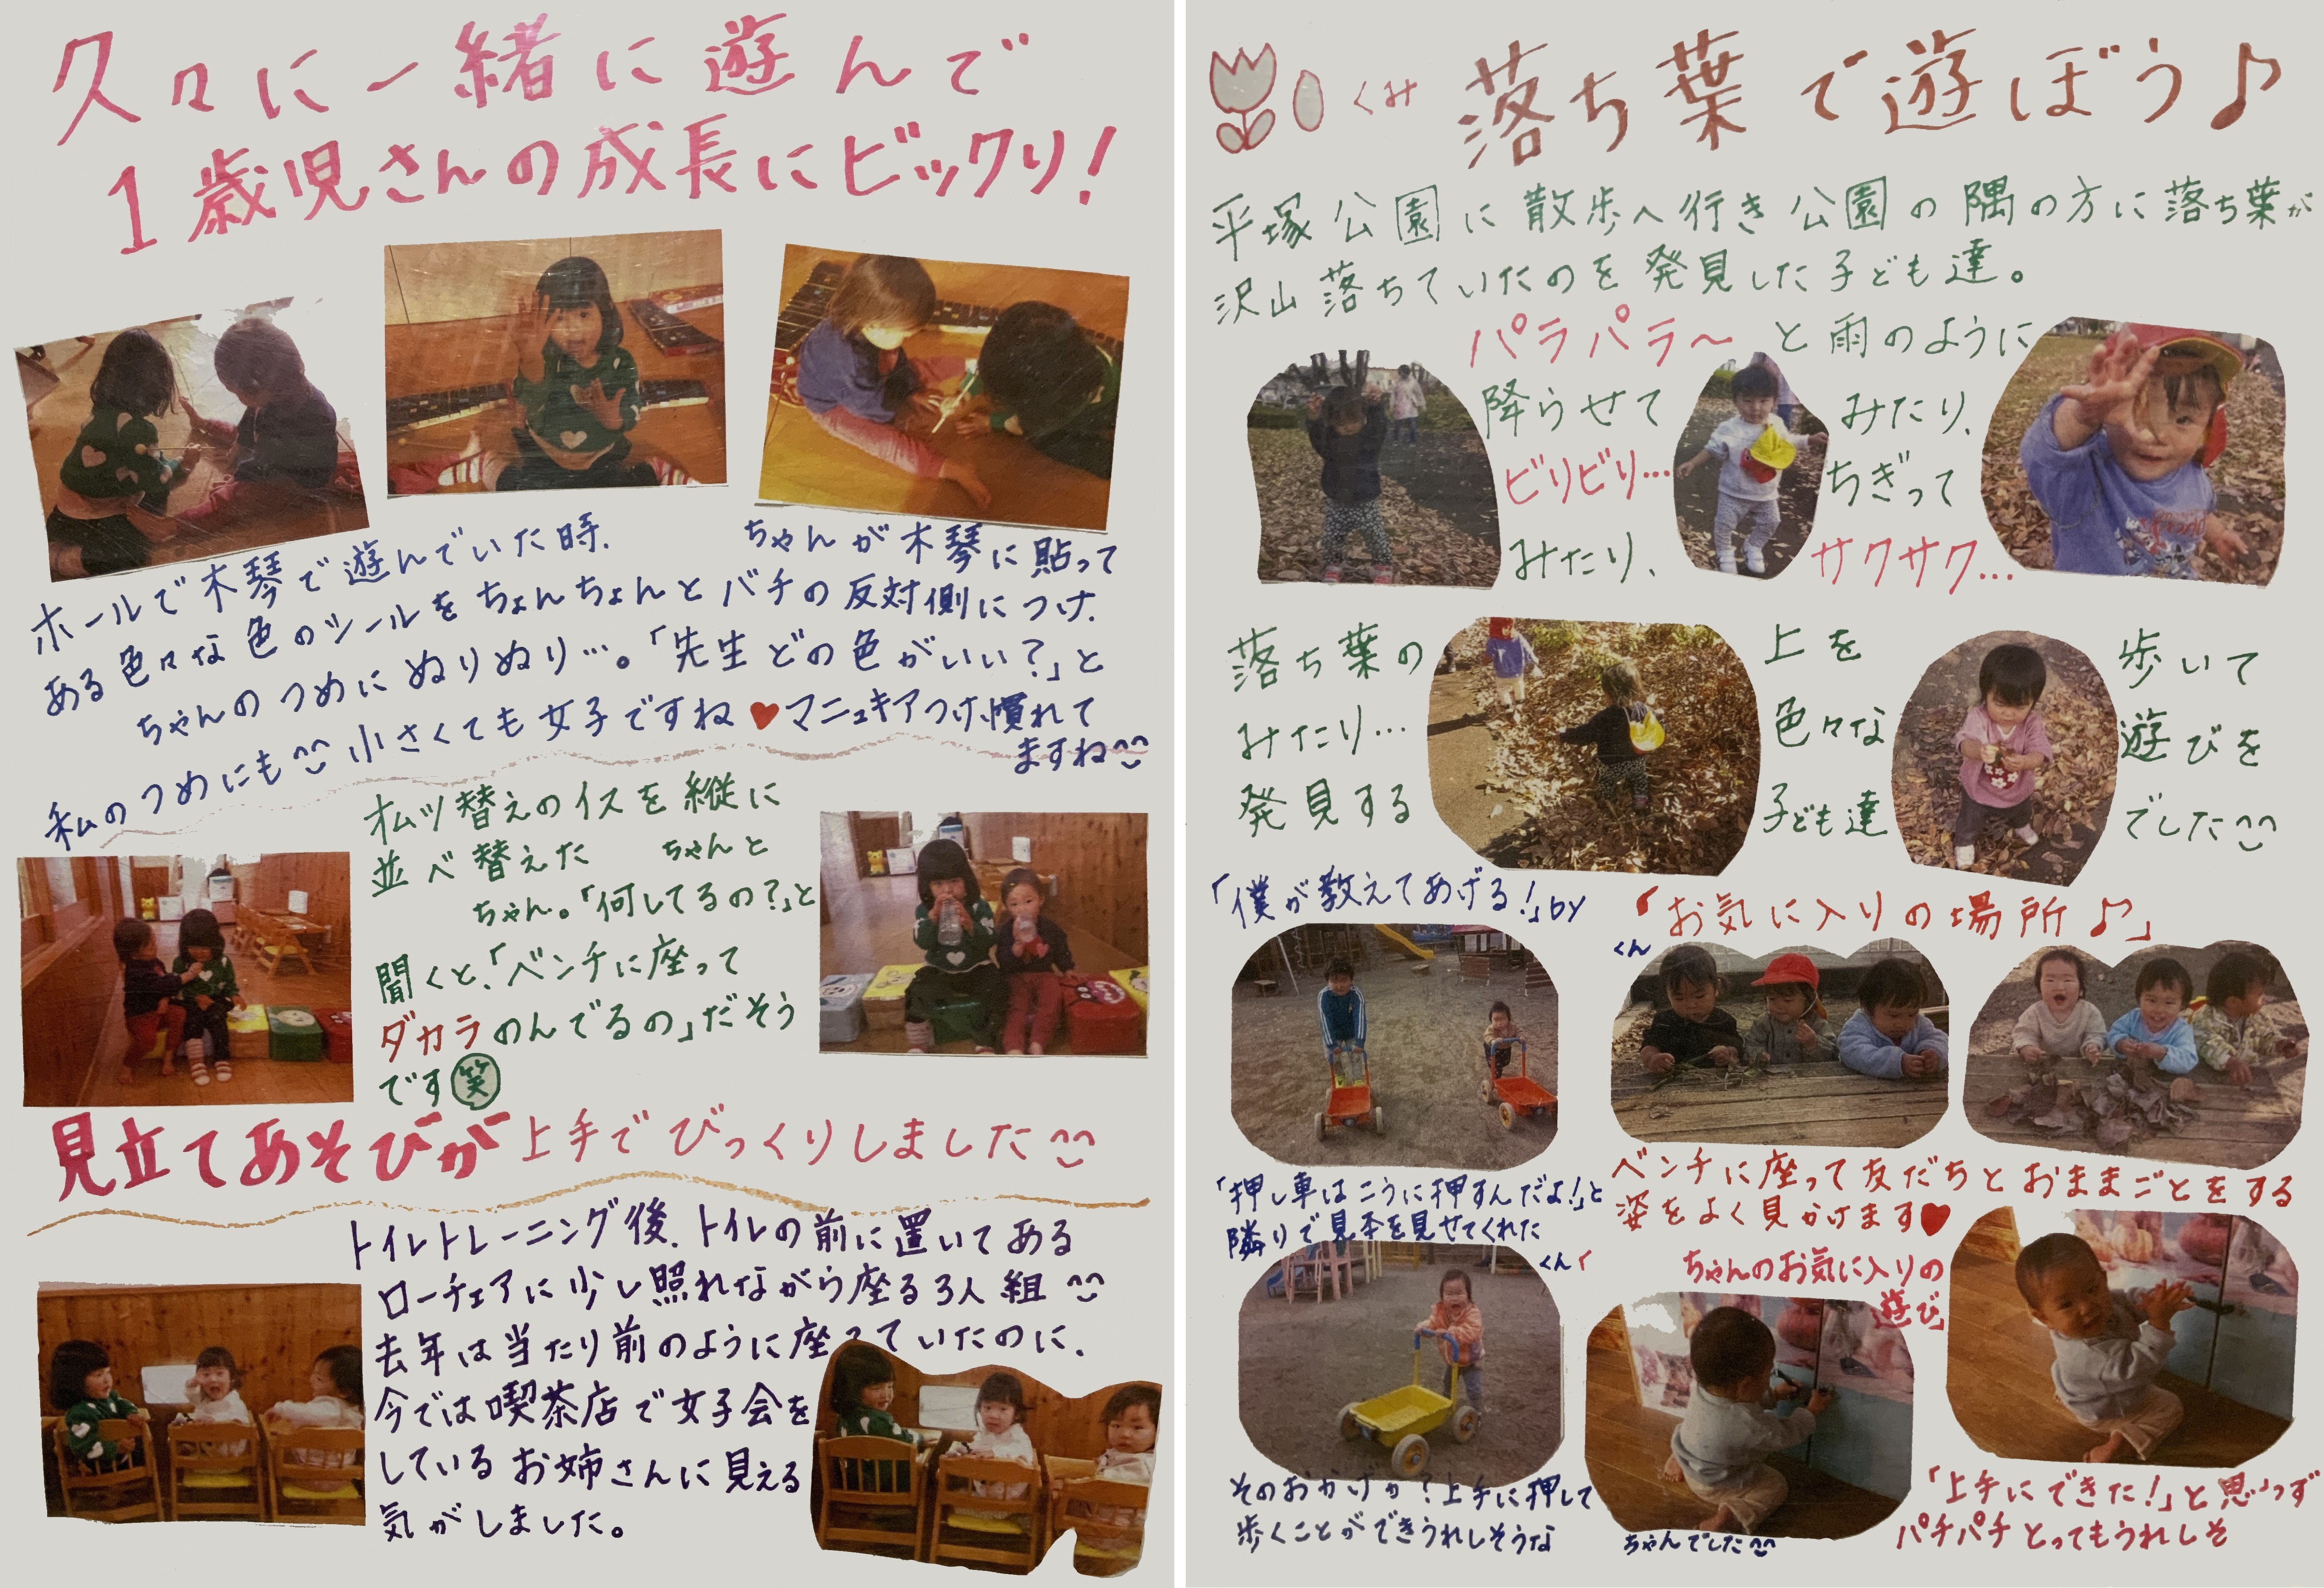 久々に一緒に遊んで
1歳児さんの成長にビックリ!
ホールで木琴で遊んでいた時、 ちゃんが木琴に貼って
ある色々な色のシールをちょんちょんとバチの反対側につけ、
ちゃんのつめにぬりぬり…。「先生どの色がいい?」と
私のつめにも 小さくても女子ですね♥マニュキアつけ慣れて
ますね
オムツ替えのイスを縦に
並べ替えた ちゃんと
ちゃん。「何してるの?」と
聞くと、「ベンチに座って
ダカラのんでるの」だそう
です笑
見立てあそびが上手でびっくりしました
トイレトレーニング後、トイレの前に置いてある
ローチェアに少し照れながら座る3人組
去年は当たり前のように座っていたのに、
今では喫茶店で女子会を
しているお姉さんに見える
気がしました。
くみ 落ち葉で遊ぼう♪
平塚公園に散歩へ行き公園の隅の方に落ち葉が
沢山落ちていたのを発見した子ども達。
パラパラ〜と雨のように
降らせてみたり、
ビリビリ…ちぎって
みたり、サクサク…
落ち葉の上を歩いて
みたり…色々な遊びを
発見する子ども達でした
「僕が教えてあげる!」by
くん
「お気に入りの場所♪」
「押し車はこうに押すんだよ!」と
隣りで見本を見せてくれた
くん「
ベンチに座って友だちとおままごとをする
姿をよく見かけます♥
ちゃんのお気に入りの
遊び」
そのおかげか?上手に押して
歩くことができうれしそうな
ちゃんでした
「上手にできた!」と思わず
パチパチとってもうれしそ